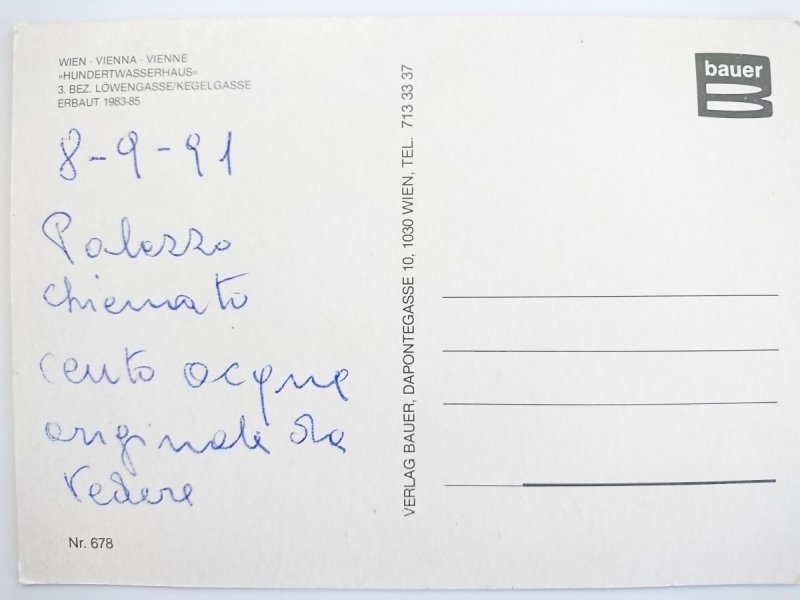 WIEN · VIENNA · VIENNE
»HUNDERTWASSERHAUS«
3. BEZ. LÖWENGASSE/KEGELGASSE
ERBAUT 1983-85
8-9-91
Palazzo
chiamato
cento acque
originale da
vedere
Nr. 678
VERLAG BAUER, DAPONTEGASSE 10, 1030 WIEN, TEL. 713 33 37
bauer